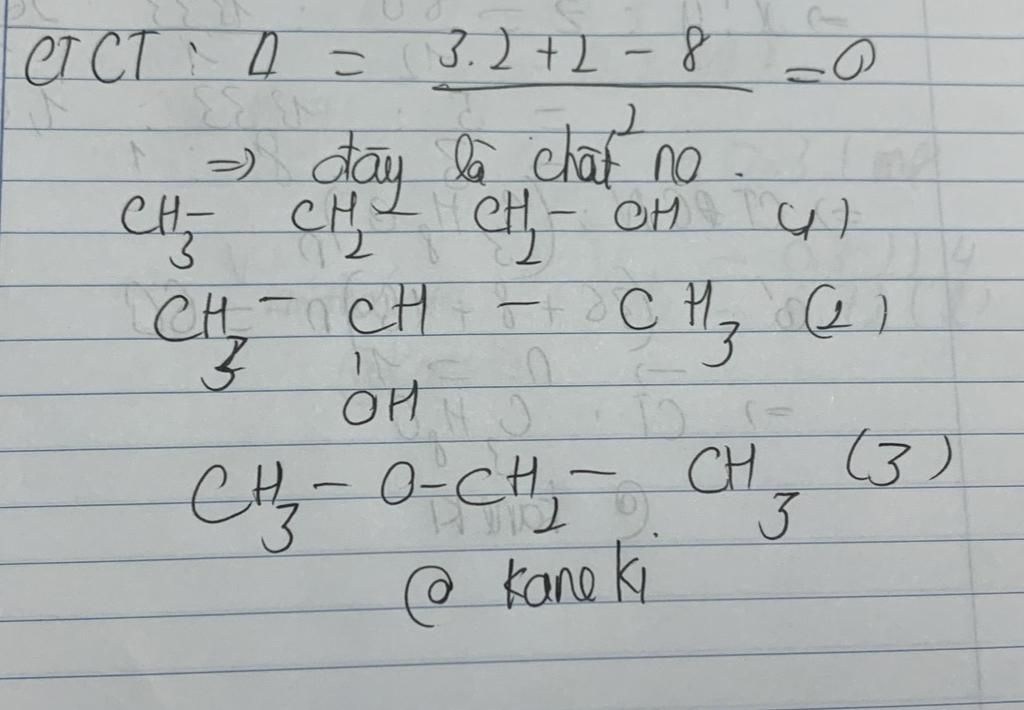 CTCT : Δ = 3.2 + 2 - 8 / 2 = 0
=> đây là chất no.
CH3 - CH2 - CH2 - OH (1)
CH3 - CH - CH3 (2)
OH
CH3 - O - CH2 - CH3 (3)
@ kaneki